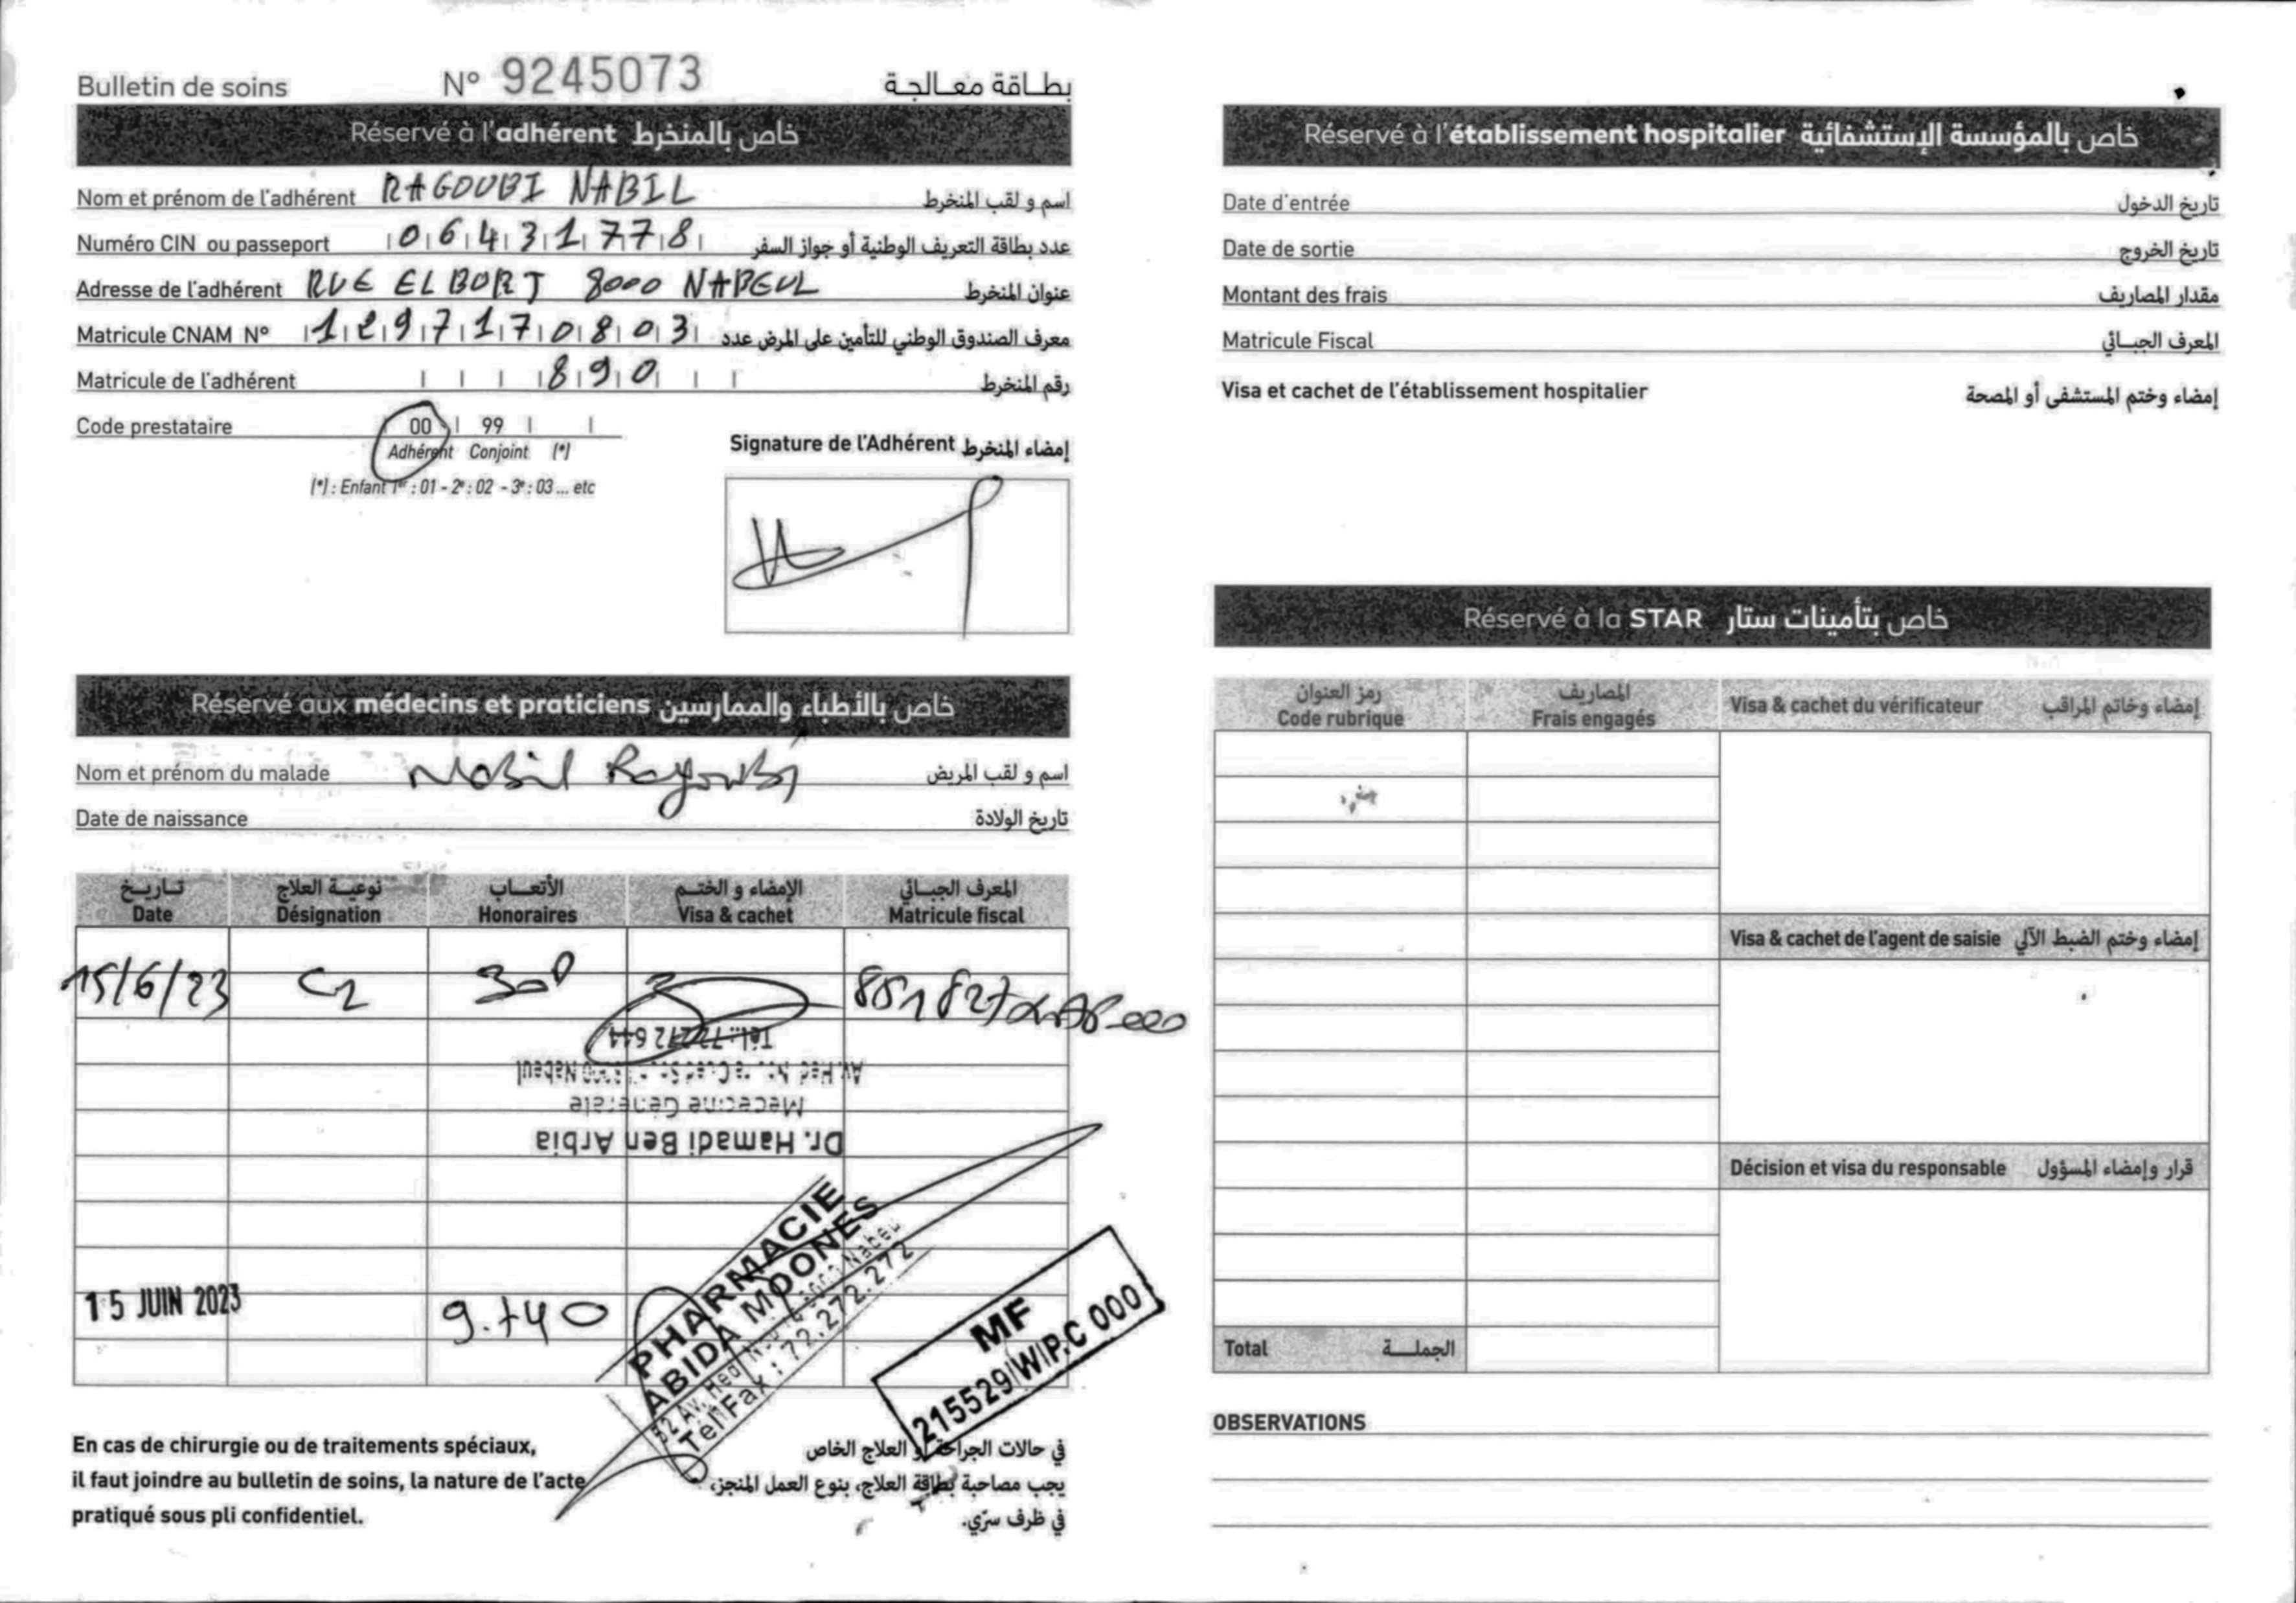 Bulletin de soins N° 9245073 بطـاقة معـالجـة
Réservé à l'adhérent خاص بالمنخرط
Nom et prénom de l'adhérent RAGOUBI NABIL اسم و لقب المنخرط
Numéro CIN ou passeport 06431778 عدد بطاقة التعريف الوطنية أو جواز السفر
Adresse de l'adhérent RUE EL BORJ 8000 NABEUL عنوان المنخرط
Matricule CNAM N° 1297170803 معرف الصندوق الوطني للتأمين على المرض عدد
Matricule de l'adhérent 890 رقم المنخرط
Code prestataire 00 99
Adhérent Conjoint (*)
(*) : Enfant 1er : 01 - 2e : 02 - 3e : 03 ... etc
Signature de l'Adhérent إمضاء المنخرط
Réservé aux médecins et praticiens خاص بالأطباء والممارسين
Nom et prénom du malade Nabil Ragoubi اسم و لقب المريض
Date de naissance تاريخ الولادة
تـاريـخ نوعيـة العلاج الأتعـاب الإمضاء و الختـم المعرف الجبـائي
Date Désignation Honoraires Visa & cachet Matricule fiscal
15/6/23 C2
Tél.: 72 272 644
Médecine Générale
Dr. Hamadi Ben Arbia
15 JUIN 2023
PHARMACIE
ABIDA MOONES
Tel/Fax : 72.272.272
MF
215529/W/P.C 000
En cas de chirurgie ou de traitements spéciaux,
il faut joindre au bulletin de soins, la nature de l'acte
pratiqué sous pli confidentiel.
في حالات الجراحة أو العلاج الخاص
يجب مصاحبة بطاقة العلاج، بنوع العمل المنجز،
في ظرف سرّي.
Réservé à l'établissement hospitalier خاص بالمؤسسة الإستشفائية
Date d'entrée تاريخ الدخول
Date de sortie تاريخ الخروج
Montant des frais مقدار المصاريف
Matricule Fiscal المعرف الجبـائي
Visa et cachet de l'établissement hospitalier إمضاء وختم المستشفى أو المصحة
Réservé à la STAR خاص بتأمينات ستار
رمز العنوان المصاريف
Code rubrique Frais engagés Visa & cachet du vérificateur إمضاء وخاتم المراقب
Visa & cachet de l'agent de saisie إمضاء وختم الضبط الآلي
Décision et visa du responsable قرار وإمضاء المسؤول
Total الجملـــة
OBSERVATIONS